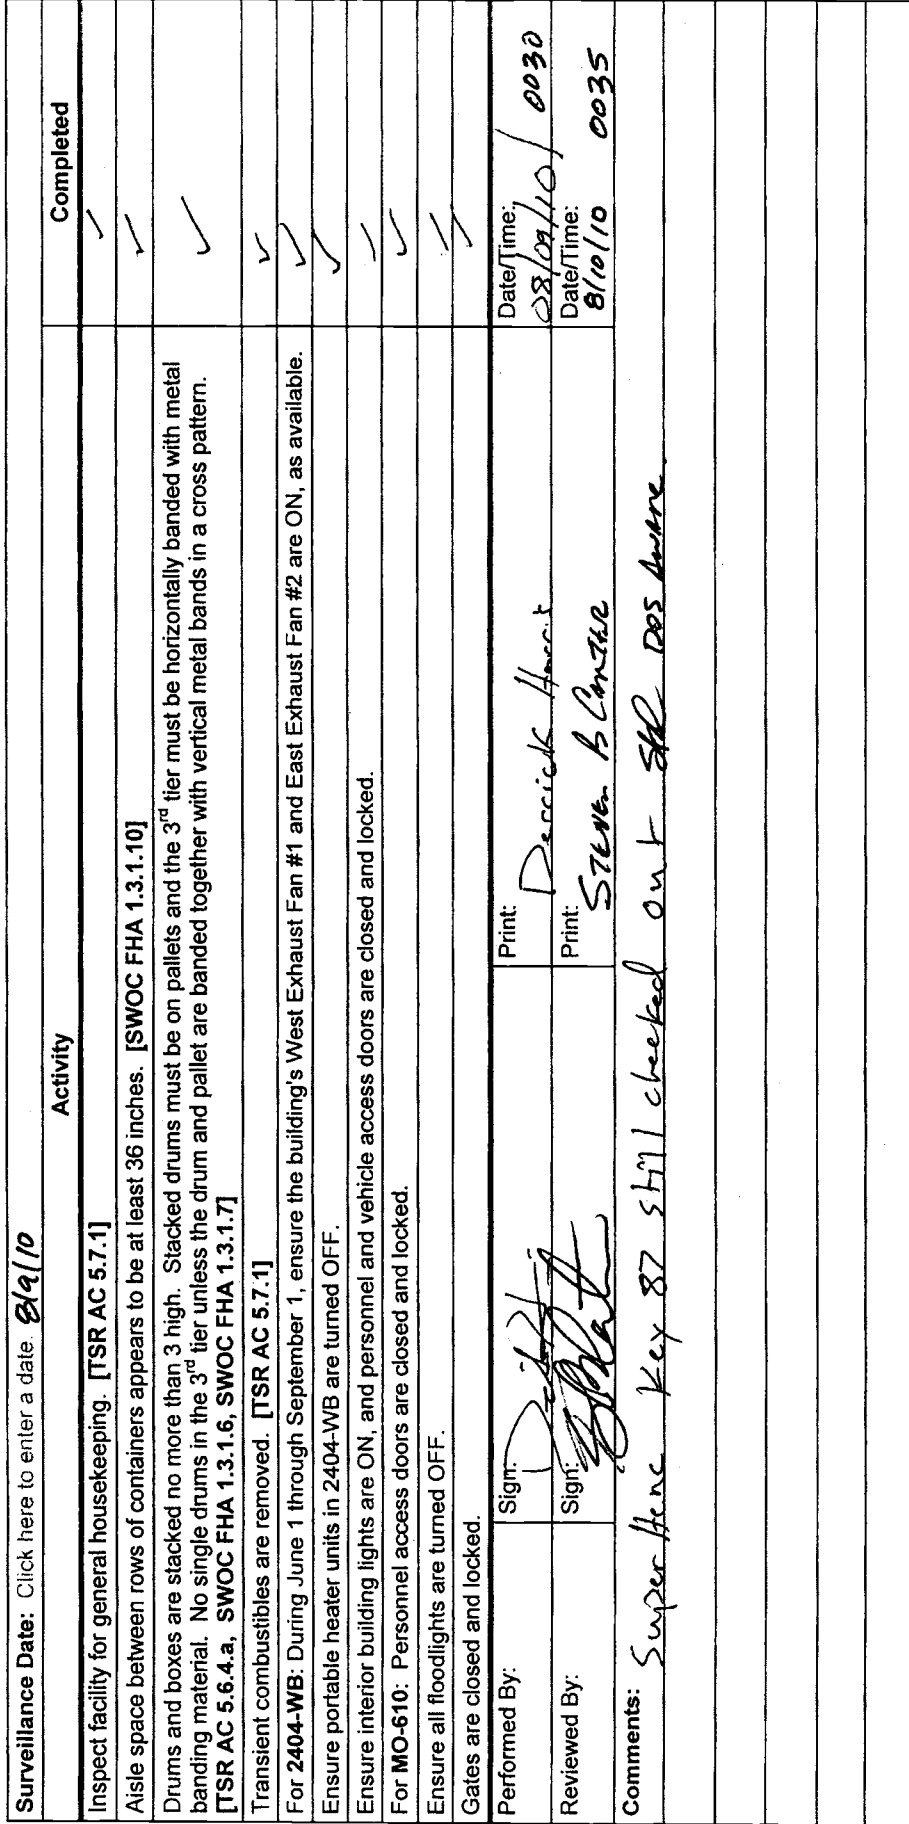 Surveillance Date: Click here to enter a date. 8/9/10
Activity Completed
Inspect facility for general housekeeping. [TSR AC 5.7.1] ✓
Aisle space between rows of containers appears to be at least 36 inches. [SWOC FHA 1.3.1.10] ✓
Drums and boxes are stacked no more than 3 high. Stacked drums must be on pallets and the 3rd tier must be horizontally banded with metal
banding material. No single drums in the 3rd tier unless the drum and pallet are banded together with vertical metal bands in a cross pattern. ✓
[TSR AC 5.6.4.a, SWOC FHA 1.3.1.6, SWOC FHA 1.3.1.7]
Transient combustibles are removed. [TSR AC 5.7.1] ✓
For 2404-WB: During June 1 through September 1, ensure the building's West Exhaust Fan #1 and East Exhaust Fan #2 are ON, as available. ✓
Ensure portable heater units in 2404-WB are turned OFF. ✓
Ensure interior building lights are ON, and personnel and vehicle access doors are closed and locked. ✓
For MO-610: Personnel access doors are closed and locked. ✓
Ensure all floodlights are turned OFF. ✓
Gates are closed and locked. ✓
Performed By: Sign: Print: Derrick Harris Date/Time: 08/09/10 / 0030
Reviewed By: Sign: Print: Steven B Canther Date/Time: 8/10/10 0035
Comments: Super Henc Key 87 still checked out DOS Aware.